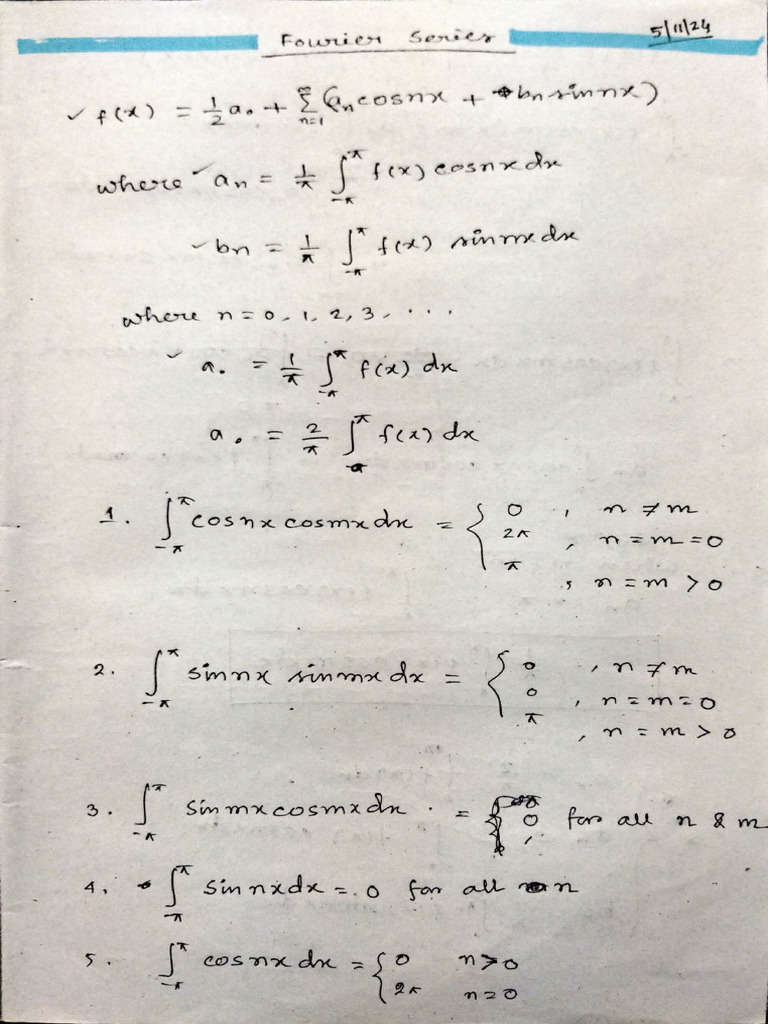 Fourier Series
5/11/24
✓ f(x) = 1/2 a₀ + ∑_{n=1}^{∞} (aₙcosnx + bₙ sinnx)
where ✓ aₙ = 1/π ∫_{-π}^{π} f(x) cosnx dx
✓ bₙ = 1/π ∫_{-π}^{π} f(x) sinnx dx
where n = 0, 1, 2, 3, ...
✓ a₀ = 1/π ∫_{-π}^{π} f(x) dx
a₀ = 2/π ∫_{0}^{π} f(x) dx
1. ∫_{-π}^{π} cosnx cosmx dx = { 0 , n ≠ m
2π , n = m = 0
π , n = m > 0
2. ∫_{-π}^{π} sinnx sinmx dx = { 0 , n ≠ m
0 , n = m = 0
π , n = m > 0
3. ∫_{-π}^{π} sinmx cosmx dx = 0 for all n & m
4. ∫_{-π}^{π} sinnx dx = 0 for all n
5. ∫_{-π}^{π} cosnx dx = { 0 n > 0
2π n = 0